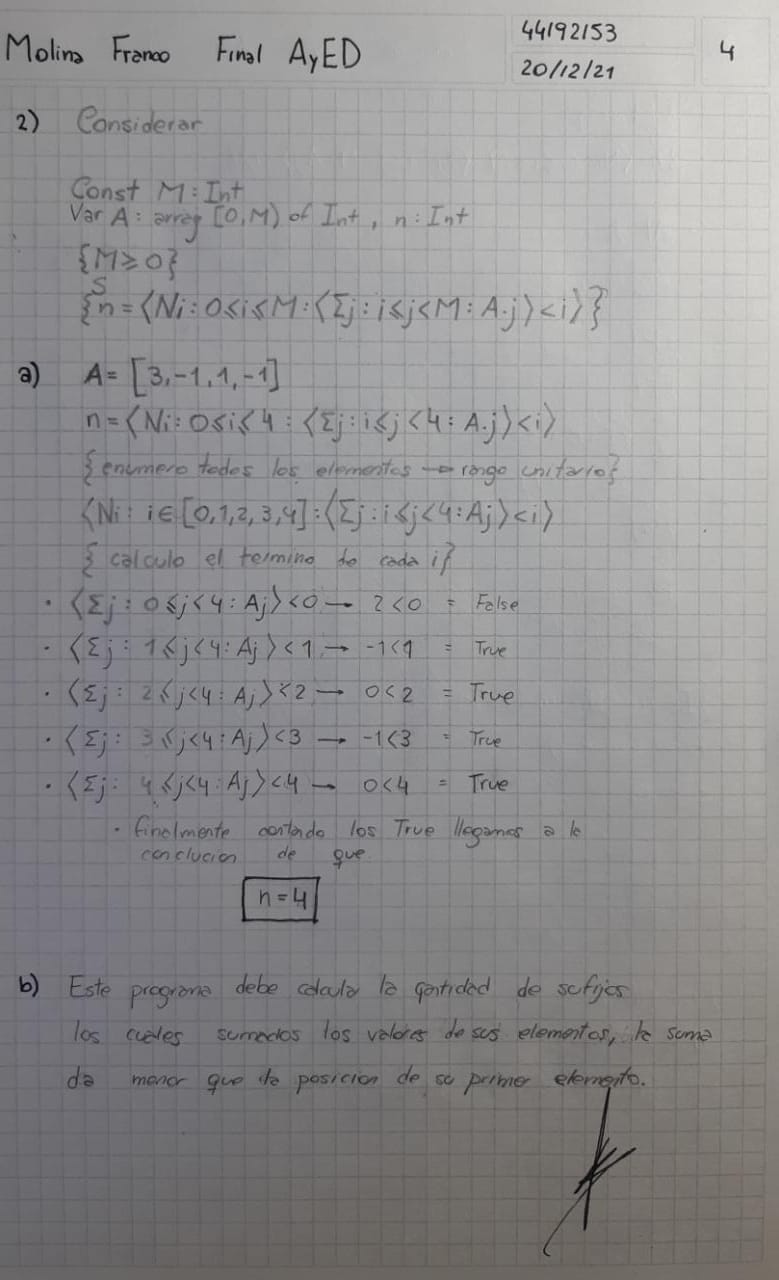 Molina Franco Final AyED
44192153
20/12/21
4
2) Considerar
Const M : Int
Var A : array [0,M) of Int, n : Int
{M ≥ 0}
S
{n = ⟨Ni : 0≤i≤M : ⟨Σj : i≤j<M : A.j⟩ < i⟩}
a) A = [3,-1,1,-1]
n = ⟨Ni : 0≤i≤4 : ⟨Σj : i≤j<4 : A.j⟩ < i⟩
{enumero todos los elementos → rango unitario}
⟨Ni : i∈[0,1,2,3,4] : ⟨Σj : i≤j<4 : Aj⟩ < i⟩
{calculo el termino de cada i}
· ⟨Σj : 0≤j<4 : Aj⟩ < 0 → 2<0 = False
· ⟨Σj : 1≤j<4 : Aj⟩ < 1 → -1<1 = True
· ⟨Σj : 2≤j<4 : Aj⟩ < 2 → 0<2 = True
· ⟨Σj : 3≤j<4 : Aj⟩ < 3 → -1<3 = True
· ⟨Σj : 4≤j<4 : Aj⟩ < 4 → 0<4 = True
· finalmente contando los True llegamos a la
conclucion de que
n = 4
b) Este programa debe calcular la cantidad de sufijos
los cuales sumados los valores de sus elementos, la suma
da menor que la posicion de su primer elemento.